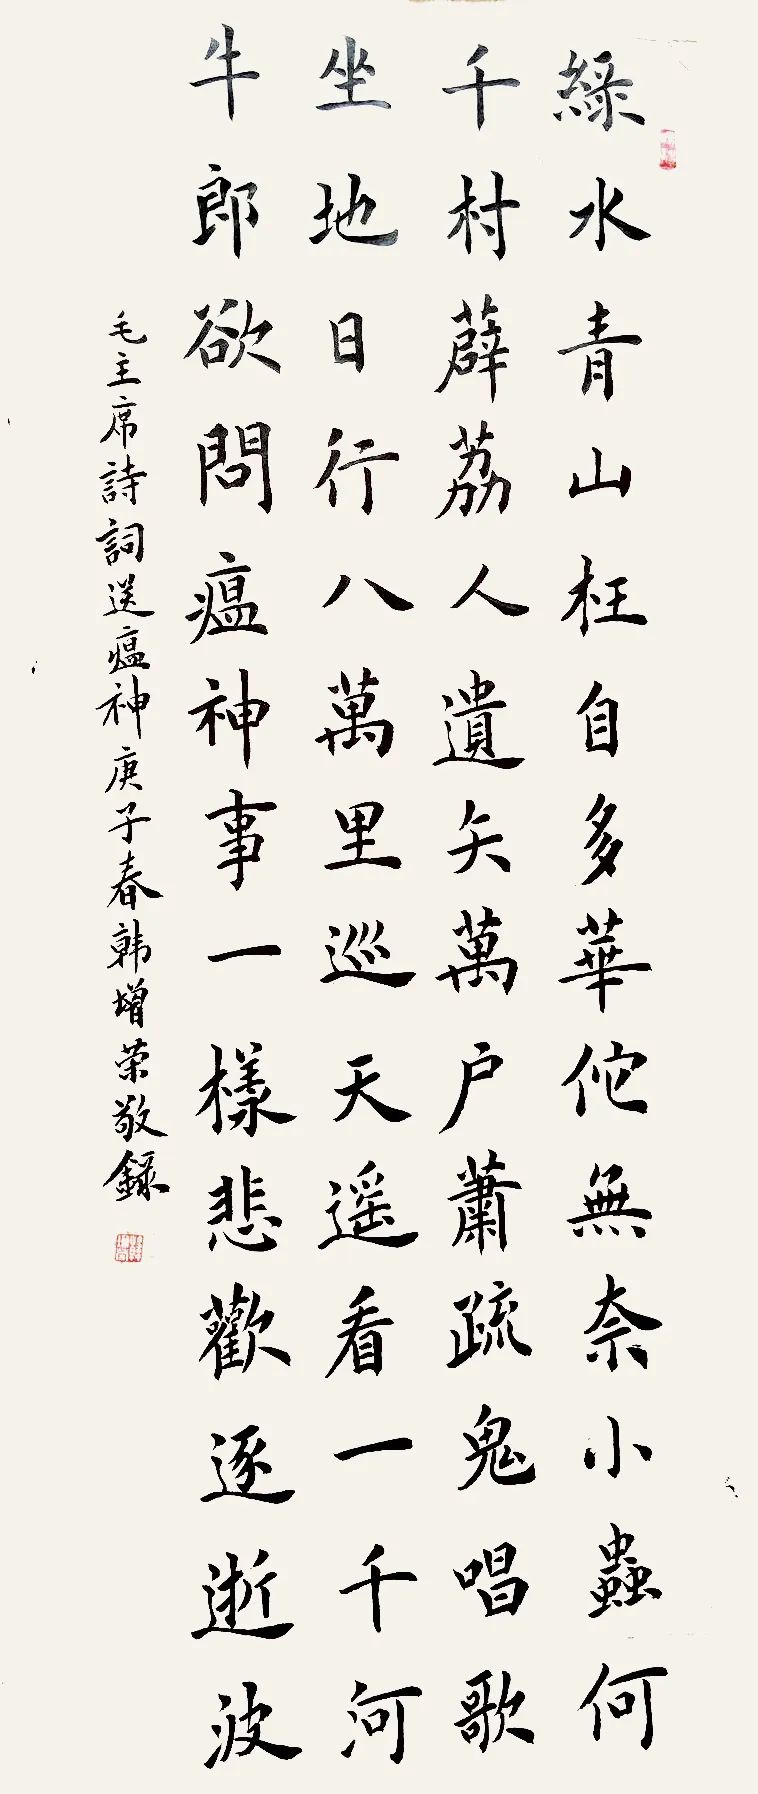 緑水青山枉自多華佗無奈小蟲何
千村薜荔人遺矢萬户蕭疏鬼唱歌
坐地日行八萬里巡天遥看一千河
牛郎欲問瘟神事一樣悲歡逐逝波
毛主席詩詞送瘟神庚子春韩增荣敬録